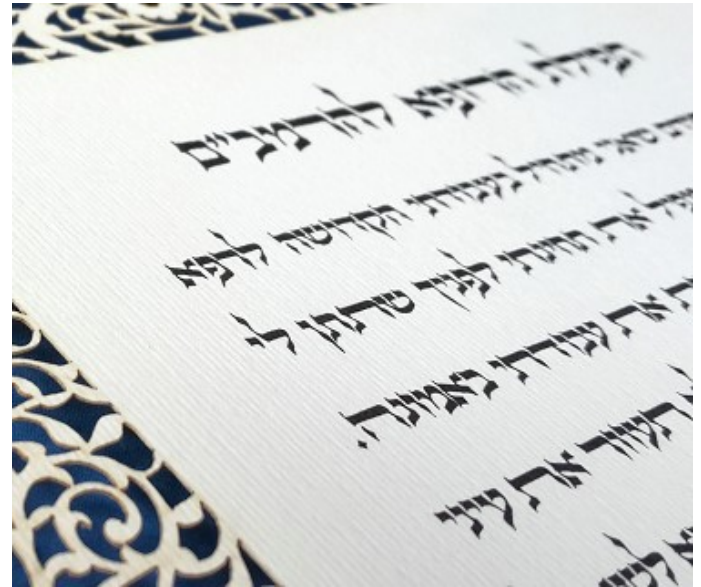 תפילת הרופא להרמב״ם
שאני מתחיל בעבודתי הקדושה לרפא
את תחינתי לפניך שתתן לי
את עבודתי באמונה.
תעוור את עיני